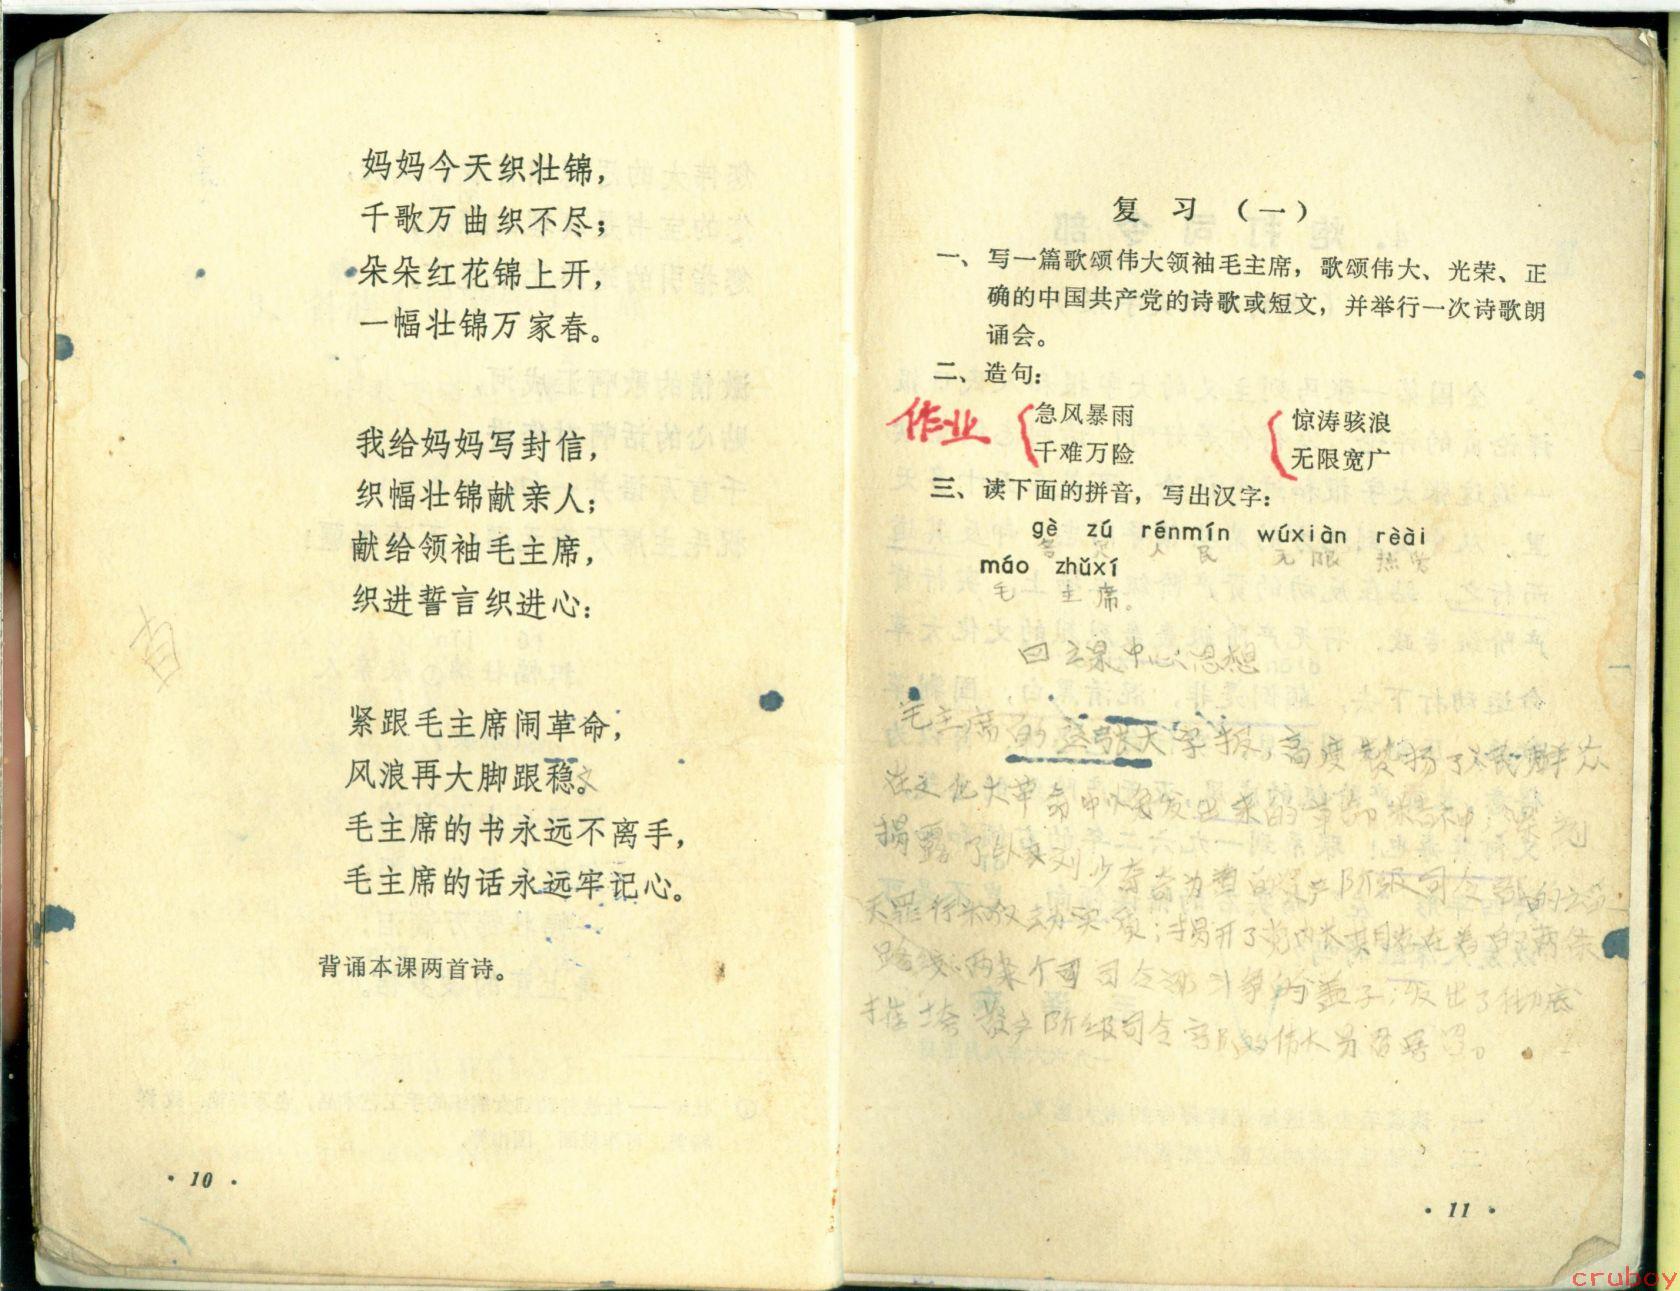 妈妈今天织壮锦，
千歌万曲织不尽；
朵朵红花锦上开，
一幅壮锦万家春。
我给妈妈写封信，
织幅壮锦献亲人；
献给领袖毛主席，
织进誓言织进心：
紧跟毛主席闹革命，
风浪再大脚跟稳。
毛主席的书永远不离手，
毛主席的话永远牢记心。
背诵本课两首诗。
· 10 ·
复 习 （一）
一、写一篇歌颂伟大领袖毛主席，歌颂伟大、光荣、正
确的中国共产党的诗歌或短文，并举行一次诗歌朗
诵会。
二、造句：
作业
急风暴雨 惊涛骇浪
千难万险 无限宽广
三、读下面的拼音，写出汉字：
gè zú rénmín wúxiàn rèài
各 人 民 无 限 热
máo zhǔxí
毛 主 席。
四 课中心思想
毛主席的这张大字报，高度赞扬了人民群众
在文化大革命中
揭露了 刘少奇为 阶级司令部的
天罪行 实质；揭开了党内长期存在着的两条
路线，两个司令部斗争的盖子；发出了彻底
摧垮 阶级司令部的伟大号召
· 11 ·
cruboy